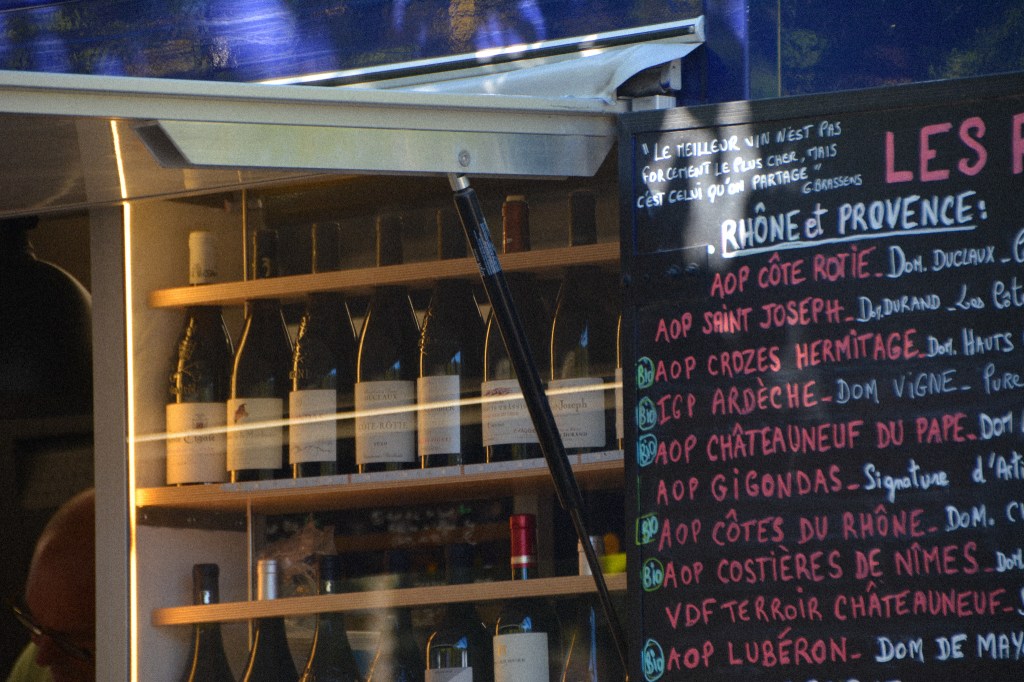 "LE MEILLEUR VIN N'EST PAS
FORCEMENT LE PLUS CHER, MAIS
C'EST CELUI QU'ON PARTAGE"
G.BRASSENS
LES
. RHÔNE et PROVENCE:
AOP CÔTE ROTIE_ DOM. DUCLAUX_
AOP SAINT JOSEPH_ DOM.DURAND_Les Côt
Bio AOP CROZES HERMITAGE_DOM. HAUTS
Bio IGP ARDÈCHE_ DOM VIGNE_ Pure
Bio AOP CHÂTEAUNEUF DU PAPE_ DOM
AOP GIGONDAS_ Signature d'Arti
Bio AOP CÔTES DU RHÔNE_ DOM. C
Bio AOP COSTIÈRES DE NÎMES_ DOM.
VDF TERROIR CHÂTEAUNEUF_
Bio AOP LUBÉRON_ DOM DE MAY
CÔTE-RÔTIE
Joseph